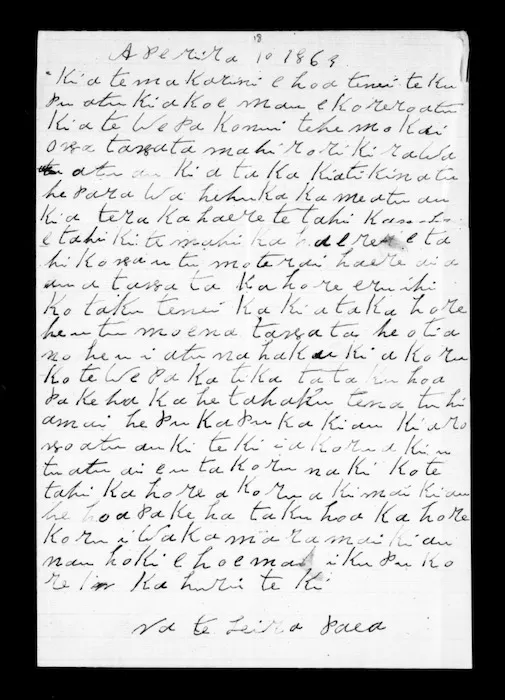 18
Aperira 10 1869
Kia te makarini e hoa tenei te ku
pu atu ki a koe mau e korero atu
Kia te Wepa Konui tehe mokai
onga tangata mahi rori ki rawa
atu au Ki ataka Kiati Kinatu
he para Wa hehuka kameatu au
Kia tera ka haere te tahi
etahi Ki te mahi Ka haere e ta
hi Ko ngautu moterai haere ai a
ana tangata Kahore
Ko taku tenei Ka Kiataka hore
he utu moena tangata he otia
no heu i atu na haku Ki a Koru
Kote Wepa Ka tika tataku hoa
pakeha Kahe tahaku tena tuhi
amai he pukapuka Kiau Kiaro
ngo atu au Ki te Ki iakorua Kiu
tu atu ai eu ta Koru na Ki Kote
tahi Ka hore a Korua Ki mai Kiau
he hoa pakeha taku hoa Ka hore
Koru i Waka marama mai Kiau
nau hoki e hoe ma i Ku pu Ko
re Ka huri te Ki
Na te Paea